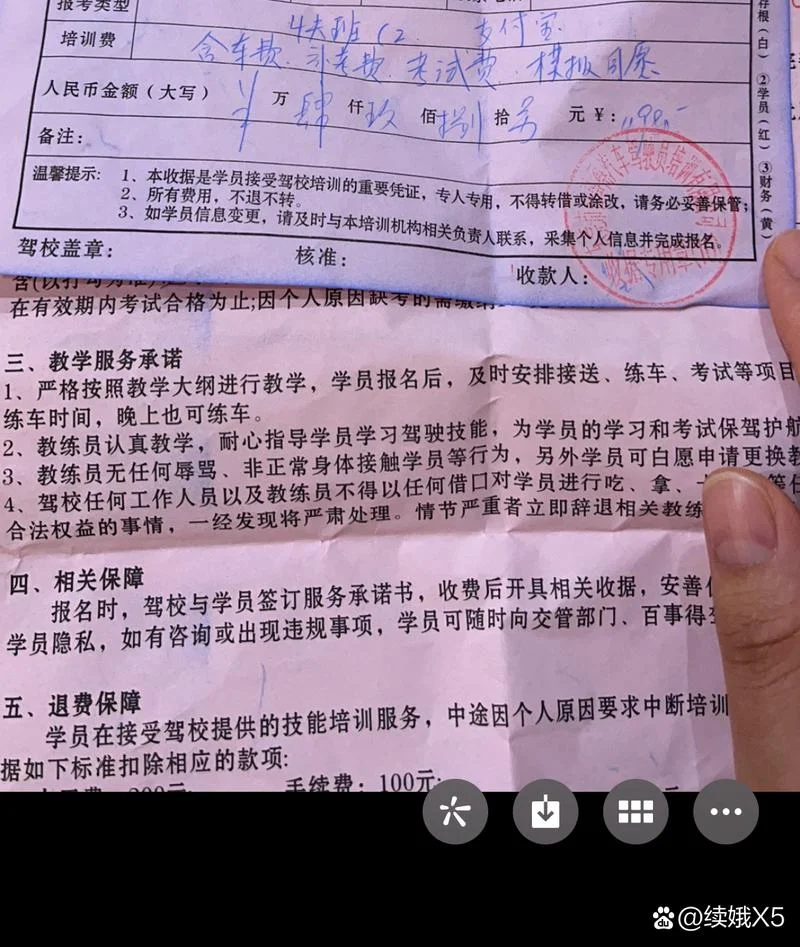 报考类型
存根(白)
培训费
支付宝
含车费 考试费 模拟
人民币金额(大写) 万 肆 仟 玖 佰 捌 拾 元 ¥:
②学员(红)
备注:
温馨提示: 1、本收据是学员接受驾校培训的重要凭证,专人专用,不得转借或涂改,请务必妥善保管;
2、所有费用,不退不转。
3、如学员信息变更,请及时与本培训机构相关负责人联系,采集个人信息并完成报名。
③财务(黄)
驾校盖章: 核准: 收款人:
收据专用章
在有效期内考试合格为止;因个人原因缺考的需缴纳
三、教学服务承诺
1、严格按照教学大纲进行教学,学员报名后,及时安排接送、练车、考试等项目
练车时间,晚上也可练车。
2、教练员认真教学,耐心指导学员学习驾驶技能,为学员的学习和考试保驾护航
3、教练员无任何辱骂、非正常身体接触学员等行为,另外学员可自愿申请更换教
4、驾校任何工作人员以及教练员不得以任何借口对学员进行吃、拿、
合法权益的事情,一经发现将严肃处理。情节严重者立即辞退相关教练
四、相关保障
报名时,驾校与学员签订服务承诺书,收费后开具相关收据,安善
学员隐私,如有咨询或出现违规事项,学员可随时向交管部门、百事得
五、退费保障
学员在接受驾校提供的技能培训服务,中途因个人原因要求中断培训
据如下标准扣除相应的款项:
手续费:100元;
@续娥X5